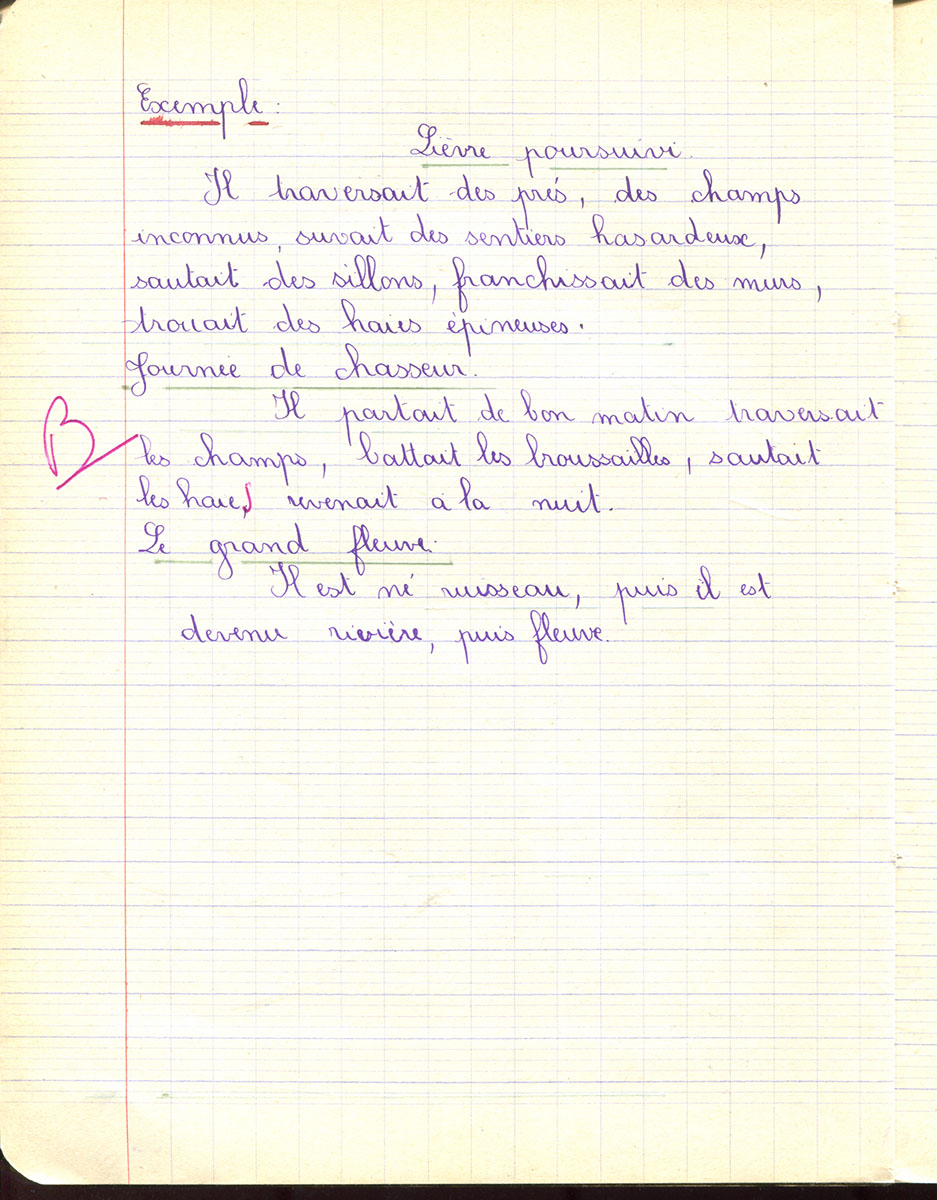 Exemple :
Lièvre poursuivi.
Il traversait des prés, des champs
inconnus, suvait des sentiers hasardeux,
sautait des sillons, franchissait des murs,
trouait des haies épineuses.
Journée de chasseur.
Il partait de bon matin traversait
B
les champs, battait les broussailles, sautait
les haies, revenait à la nuit.
Le grand fleuve.
Il est né ruisseau, puis il est
devenu rivière, puis fleuve.